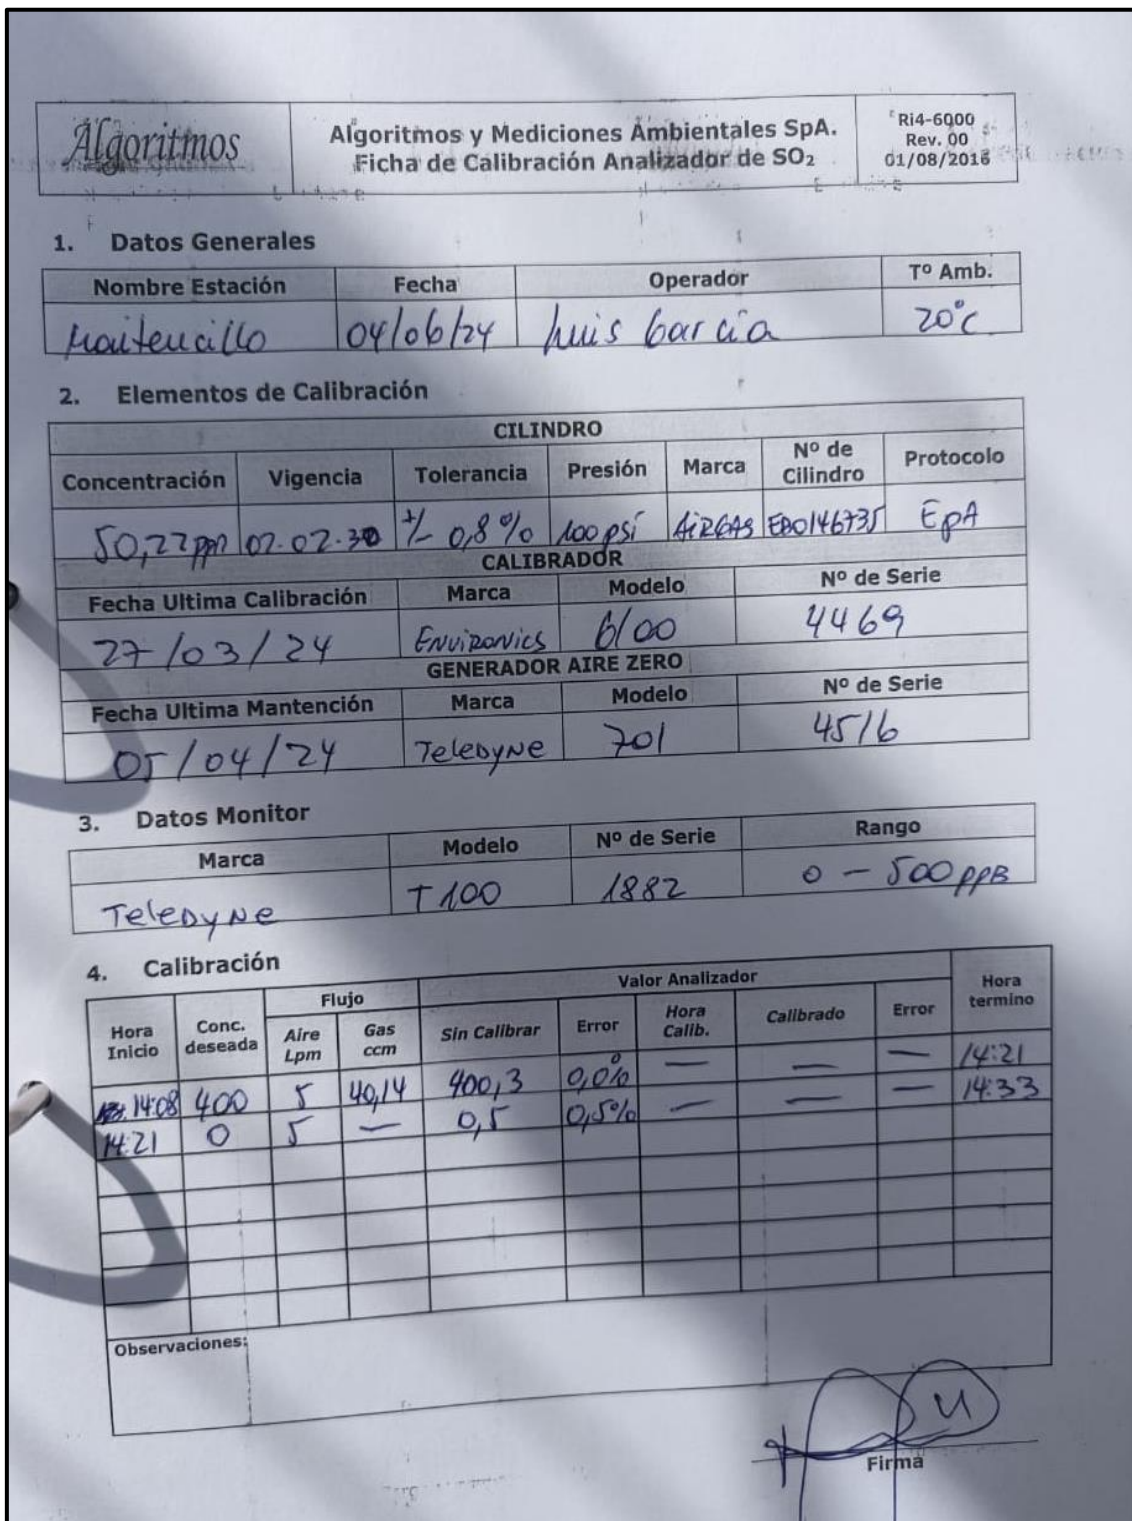 Algoritmos
Algoritmos y Mediciones Ambientales SpA.
Ficha de Calibración Analizador de SO₂
Ri4-6000
Rev. 00
01/08/2016
1. Datos Generales
Nombre Estación Fecha Operador Tº Amb.
Maitencillo 04/06/24 Luis Garcia 20°C
2. Elementos de Calibración
CILINDRO
Concentración Vigencia Tolerancia Presión Marca Nº de Cilindro Protocolo
50,22ppm 02.02.30 +/- 0,8% 100psi AiRGAS EB0146735 EpA
CALIBRADOR
Fecha Ultima Calibración Marca Modelo Nº de Serie
27/03/24 Environics 6100 4469
GENERADOR AIRE ZERO
Fecha Ultima Mantención Marca Modelo Nº de Serie
05/04/24 Teledyne 701 4516
3. Datos Monitor
Marca Modelo Nº de Serie Rango
Teledyne T100 1882 0 - 500ppB
4. Calibración
Hora Inicio Conc. deseada Flujo Valor Analizador Hora termino
Aire Lpm Gas ccm Sin Calibrar Error Hora Calib. Calibrado Error
14:08 400 5 40,14 400,3 0,0% — — — 14:21
14:21 0 5 — 0,5 0,5% — — — 14:33
Observaciones:
Firma